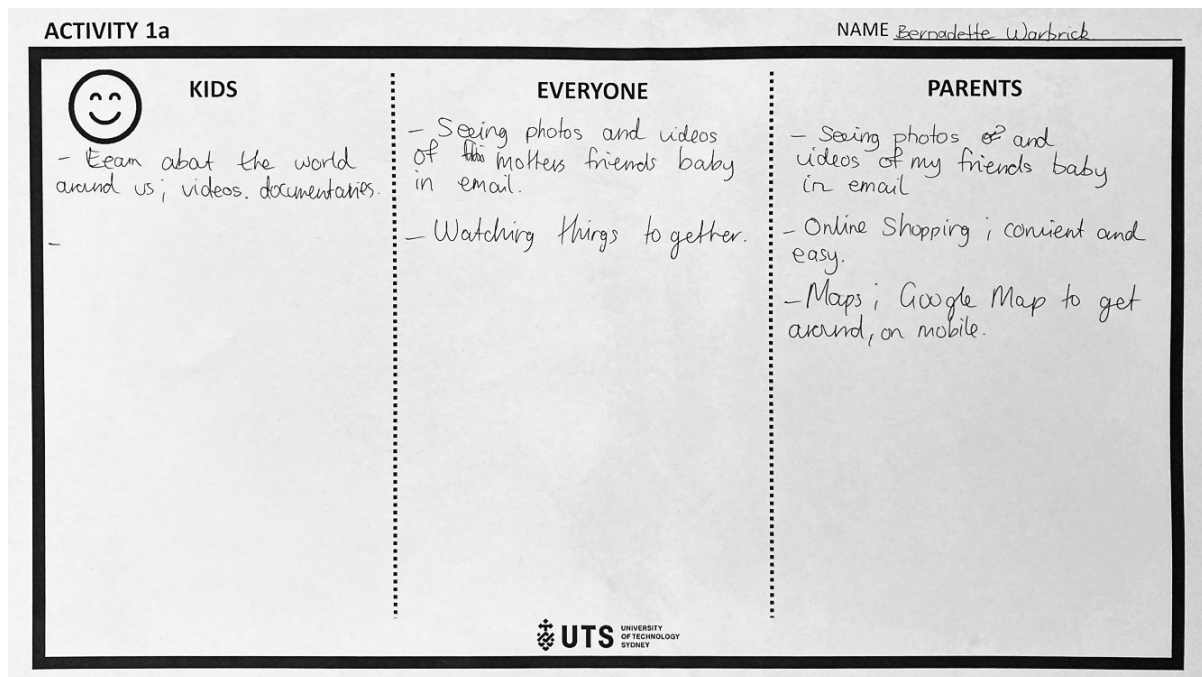 ACTIVITY 1a
NAME Bernadette Warbrick
KIDS
- Learn about the world
around us; videos. documentaries.
-
EVERYONE
- Seeing photos and videos
of motters friends baby
in email.
- Watching things together.
PARENTS
- Seeing photos and
videos of my friends baby
in email
- Online Shopping; convient and
easy.
- Maps; Google Map to get
around, on mobile.
UTS
UNIVERSITY
OF TECHNOLOGY
SYDNEY